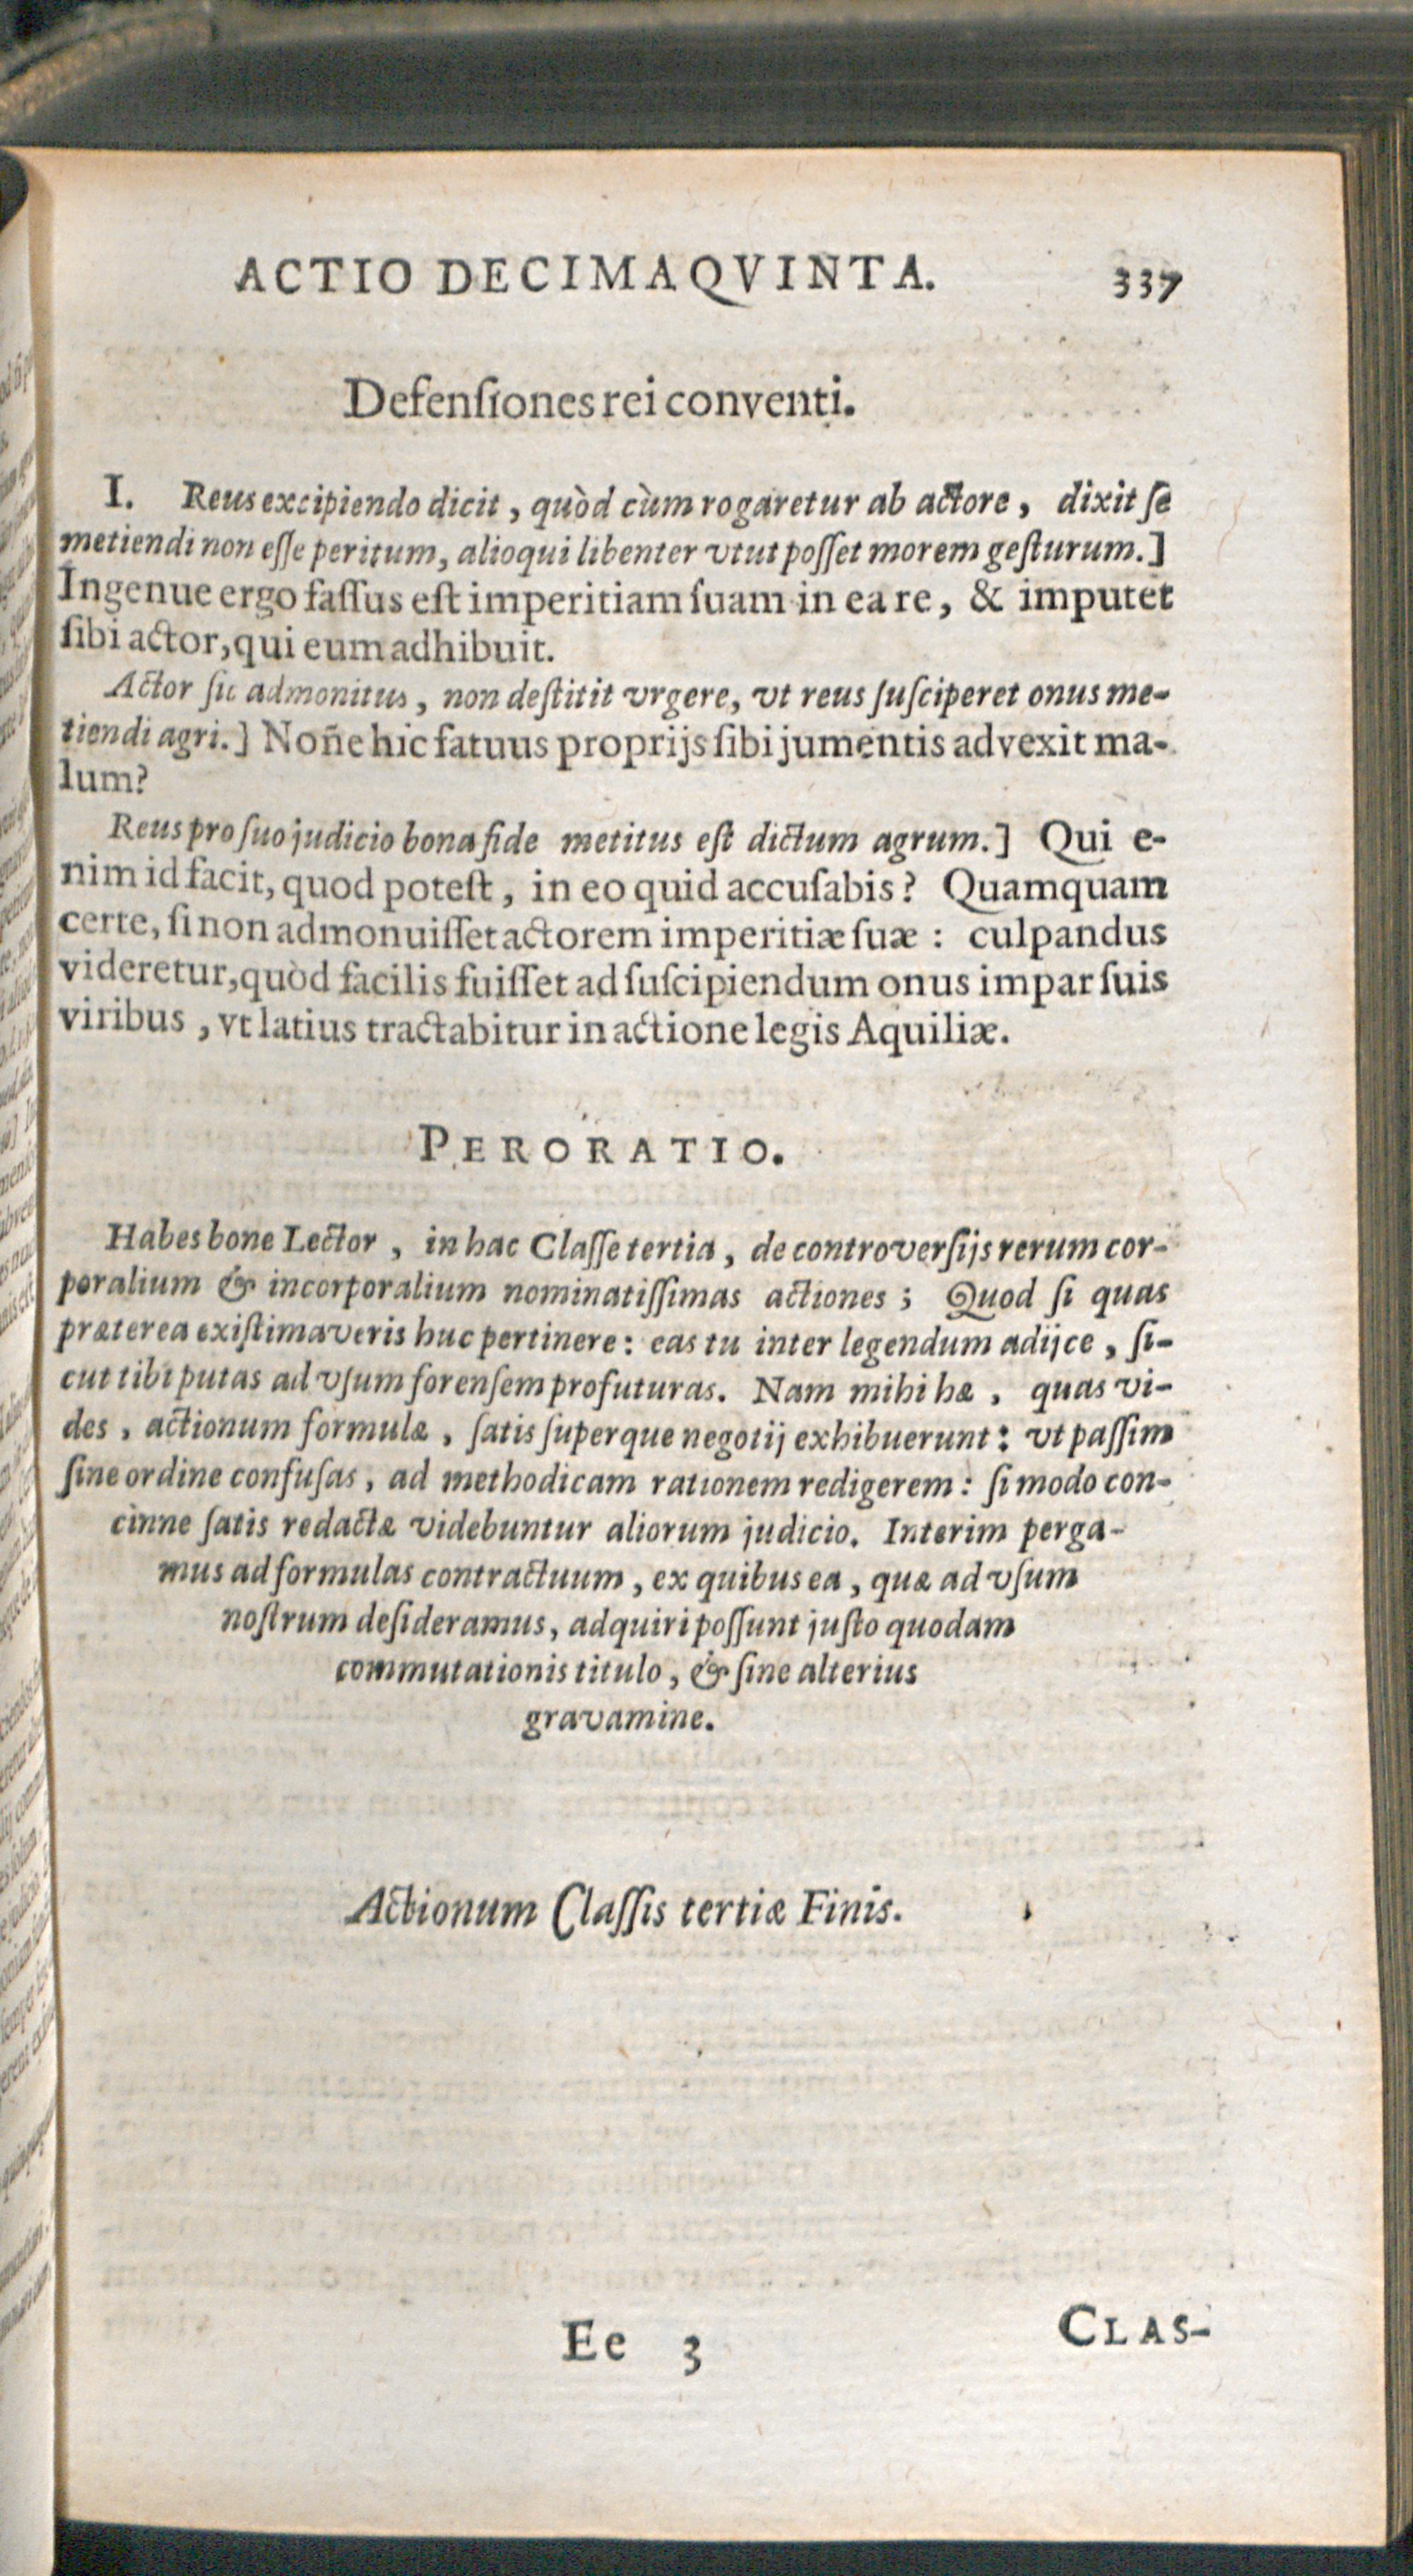 ACTIO DECIMAQVINTA. 337
Defenſiones rei conventi.
I. Reus excipiendo dicit, quòd cùm rogaretur ab actore, dixit ſe
metiendi non eſſe peritum, alioqui libenter vtut poſſet morem geſturum.]
Ingenue ergo faſſus eſt imperitiam ſuam in ea re, & imputet
ſibi actor, qui eum adhibuit.
Actor ſic admonitus, non deſtitit vrgere, vt reus ſuſciperet onus me-
tiendi agri.] Noñe hic fatuus proprijs ſibi jumentis advexit ma-
lum?
Reus pro ſuo judicio bona fide metitus eſt dictum agrum.] Qui e-
nim id facit, quod poteſt, in eo quid accuſabis? Quamquam
certe, ſi non admonuiſſet actorem imperitiæ ſuæ: culpandus
videretur, quòd facilis fuiſſet ad ſuſcipiendum onus impar ſuis
viribus, vt latius tractabitur in actione legis Aquiliæ.
PERORATIO.
Habes bone Lector, in hac Claſſe tertia, de controverſijs rerum cor-
poralium & incorporalium nominatiſſimas actiones; Quod ſi quas
præterea exiſtimaveris huc pertinere: eas tu inter legendum adijce, ſi-
cut tibi putas ad vſum forenſem profuturas. Nam mihi hæ, quas vi-
des, actionum formulæ, ſatis ſuperque negotij exhibuerunt: vt paſſim
ſine ordine confuſas, ad methodicam rationem redigerem: ſi modo con-
cinne ſatis redactæ videbuntur aliorum judicio. Interim perga-
mus ad formulas contractuum, ex quibus ea, quæ ad vſum
noſtrum deſideramus, adquiri poſſunt juſto quodam
commutationis titulo, & ſine alterius
gravamine.
Actionum Claſſis tertiæ Finis.
Ee 3 CLAS-